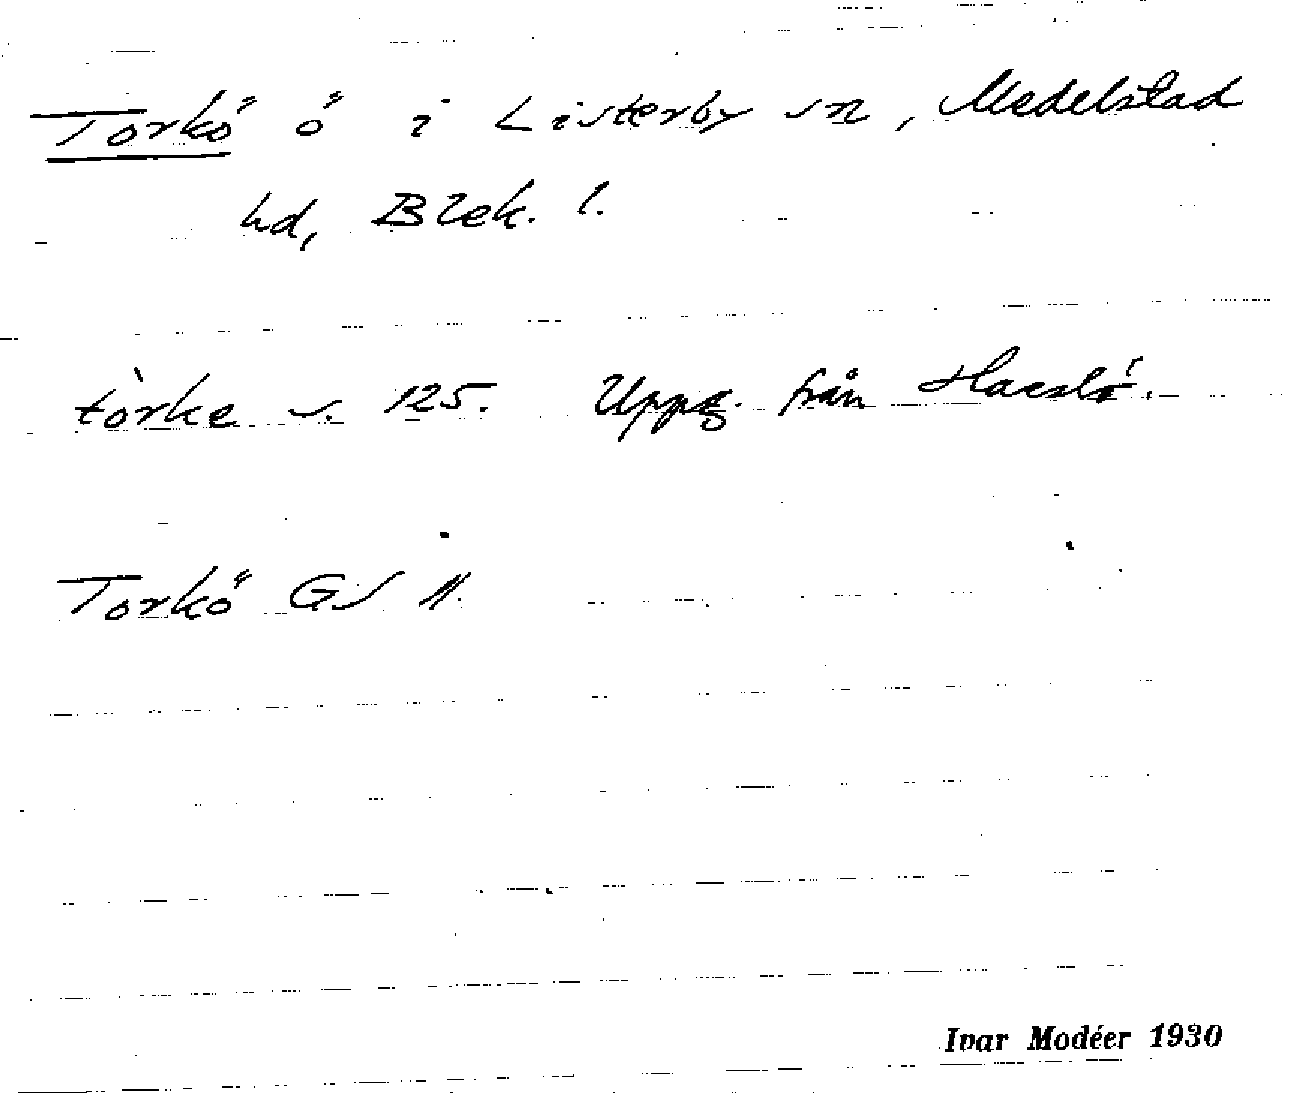 Torkö ö i Listerby sn, Medelstad
hd, Blek. l.
tòrke s. 125. Uppg. från Haeslö.
Torkö GS
Ivar Modéer 1930